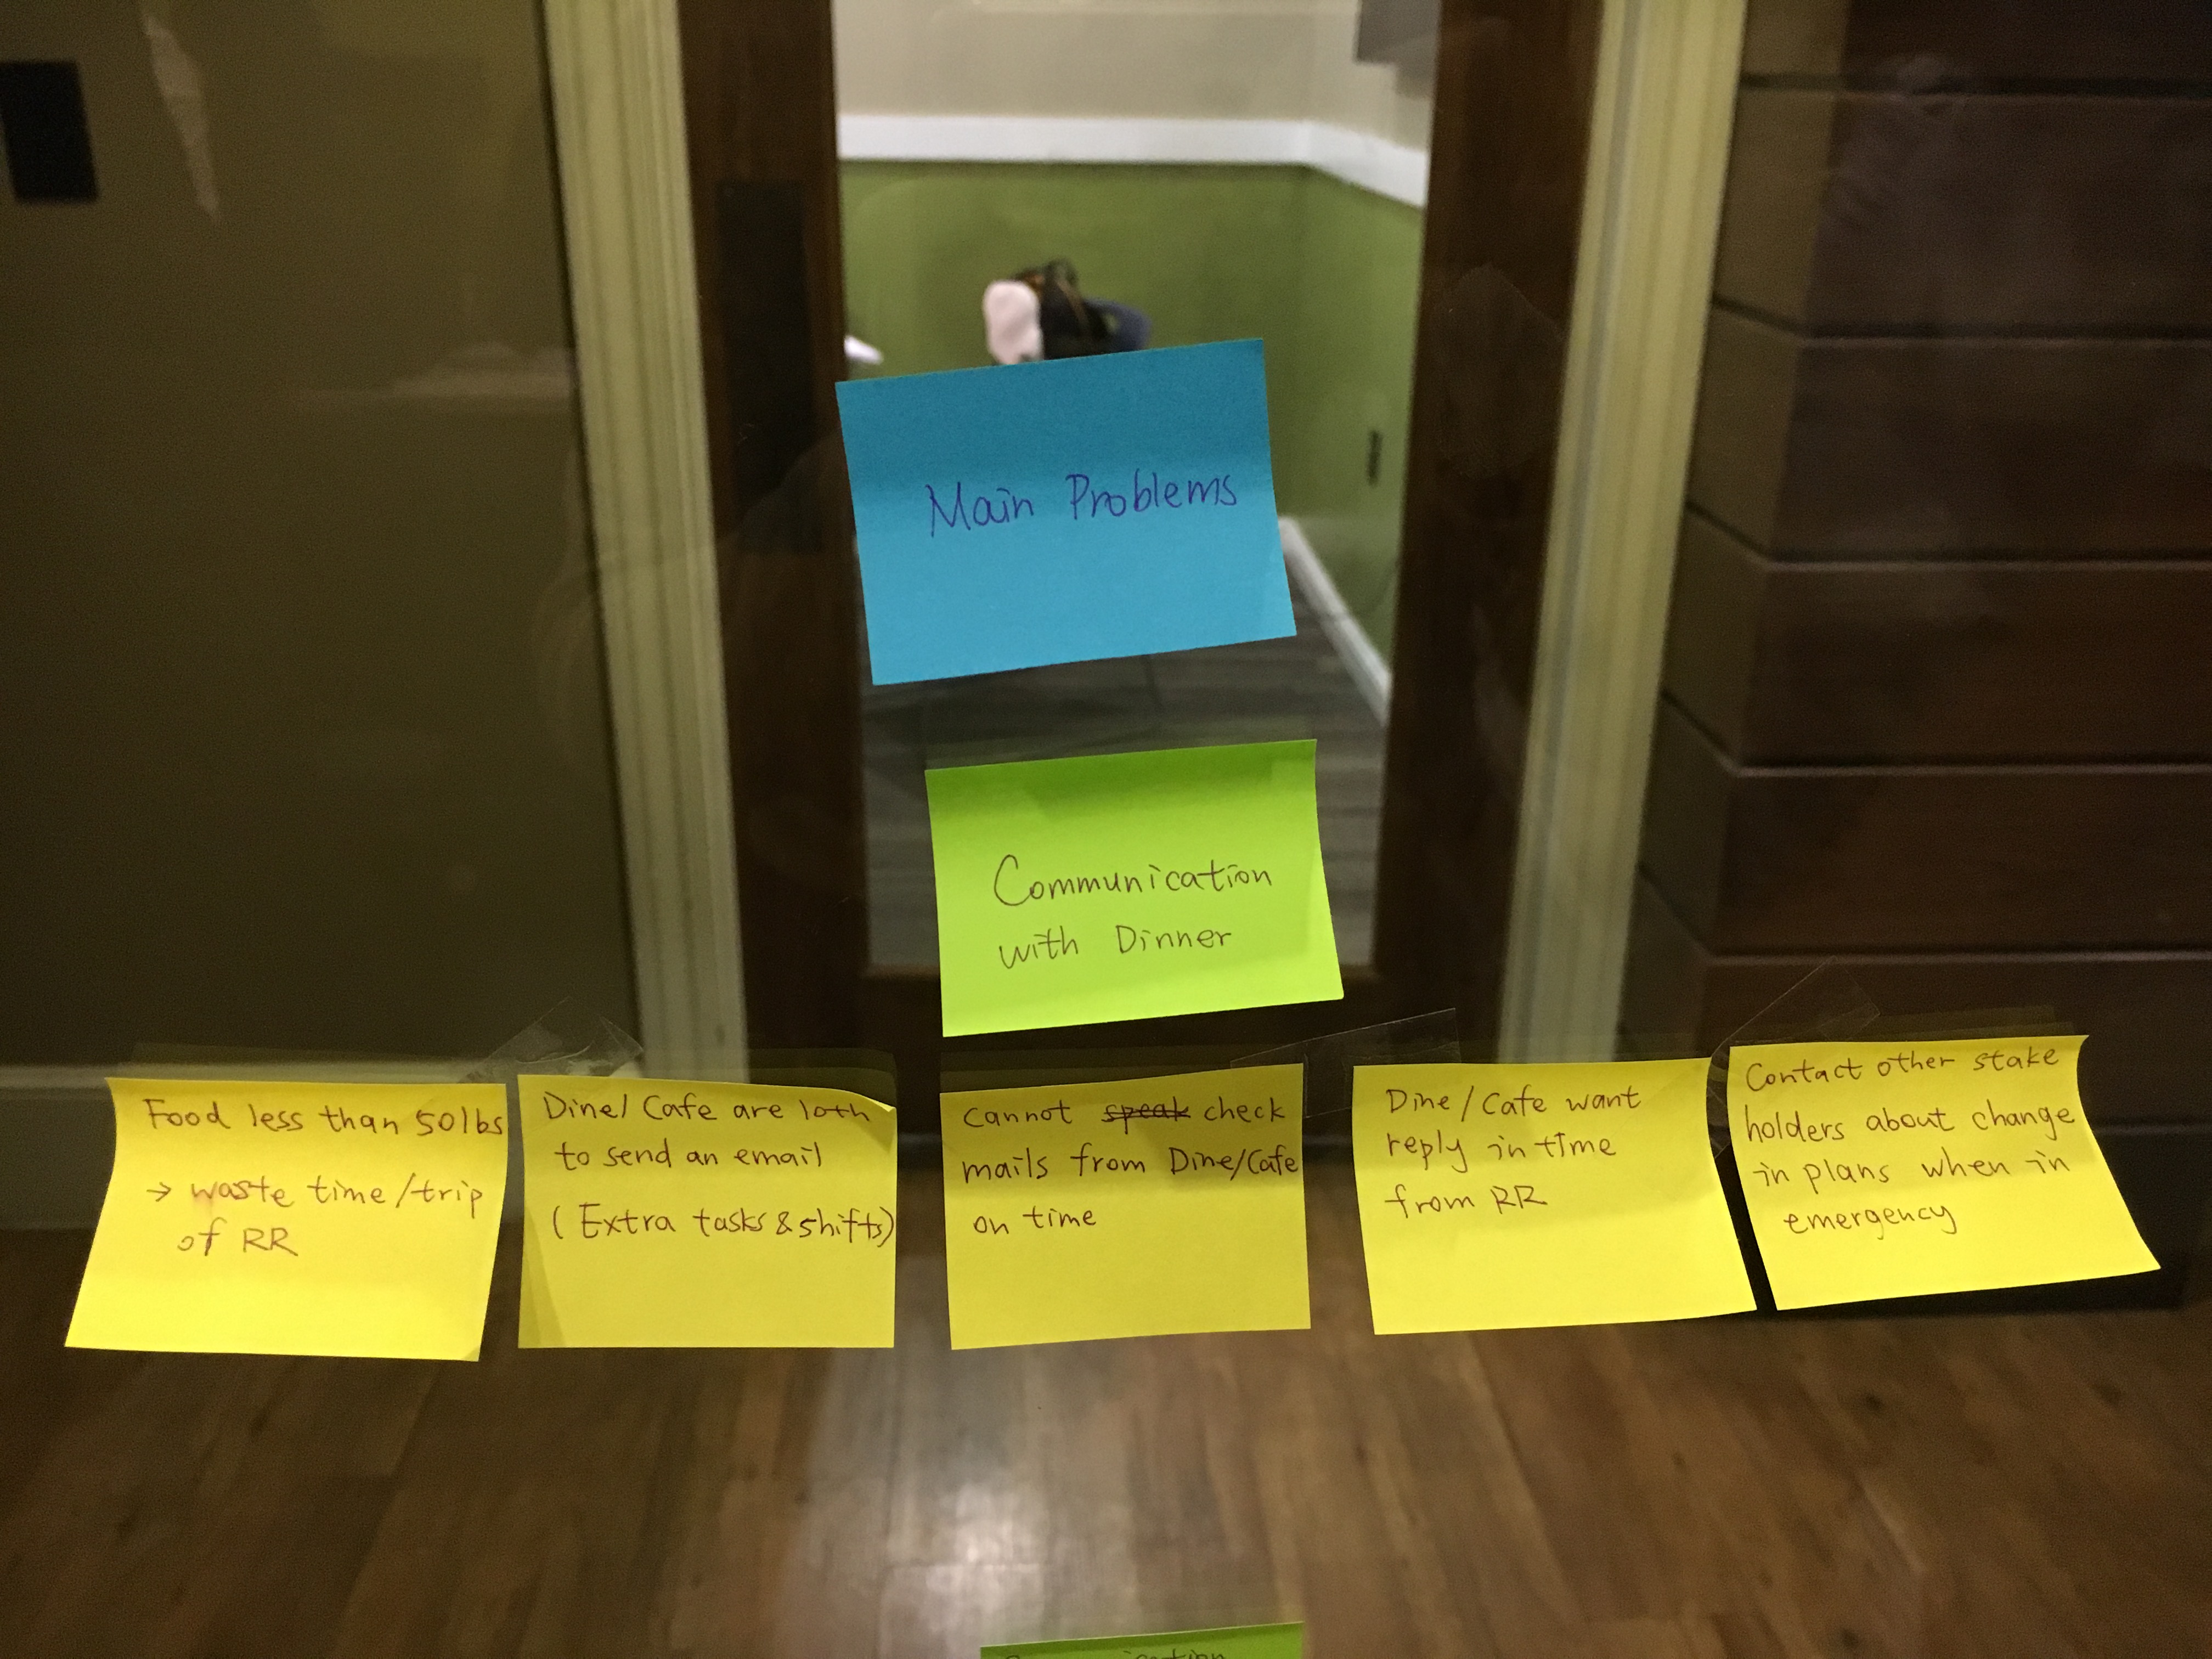 Main Problems
Communication
with Dinner
Food less than 50lbs
→ waste time/trip
of RR
Dine/ Cafe are loth
to send an email
(Extra tasks & shifts)
Cannot speak check
mails from Dine/Cafe
on time
Dine/Cafe want
reply in time
from RR
Contact other stake
holders about change
in plans when in
emergency